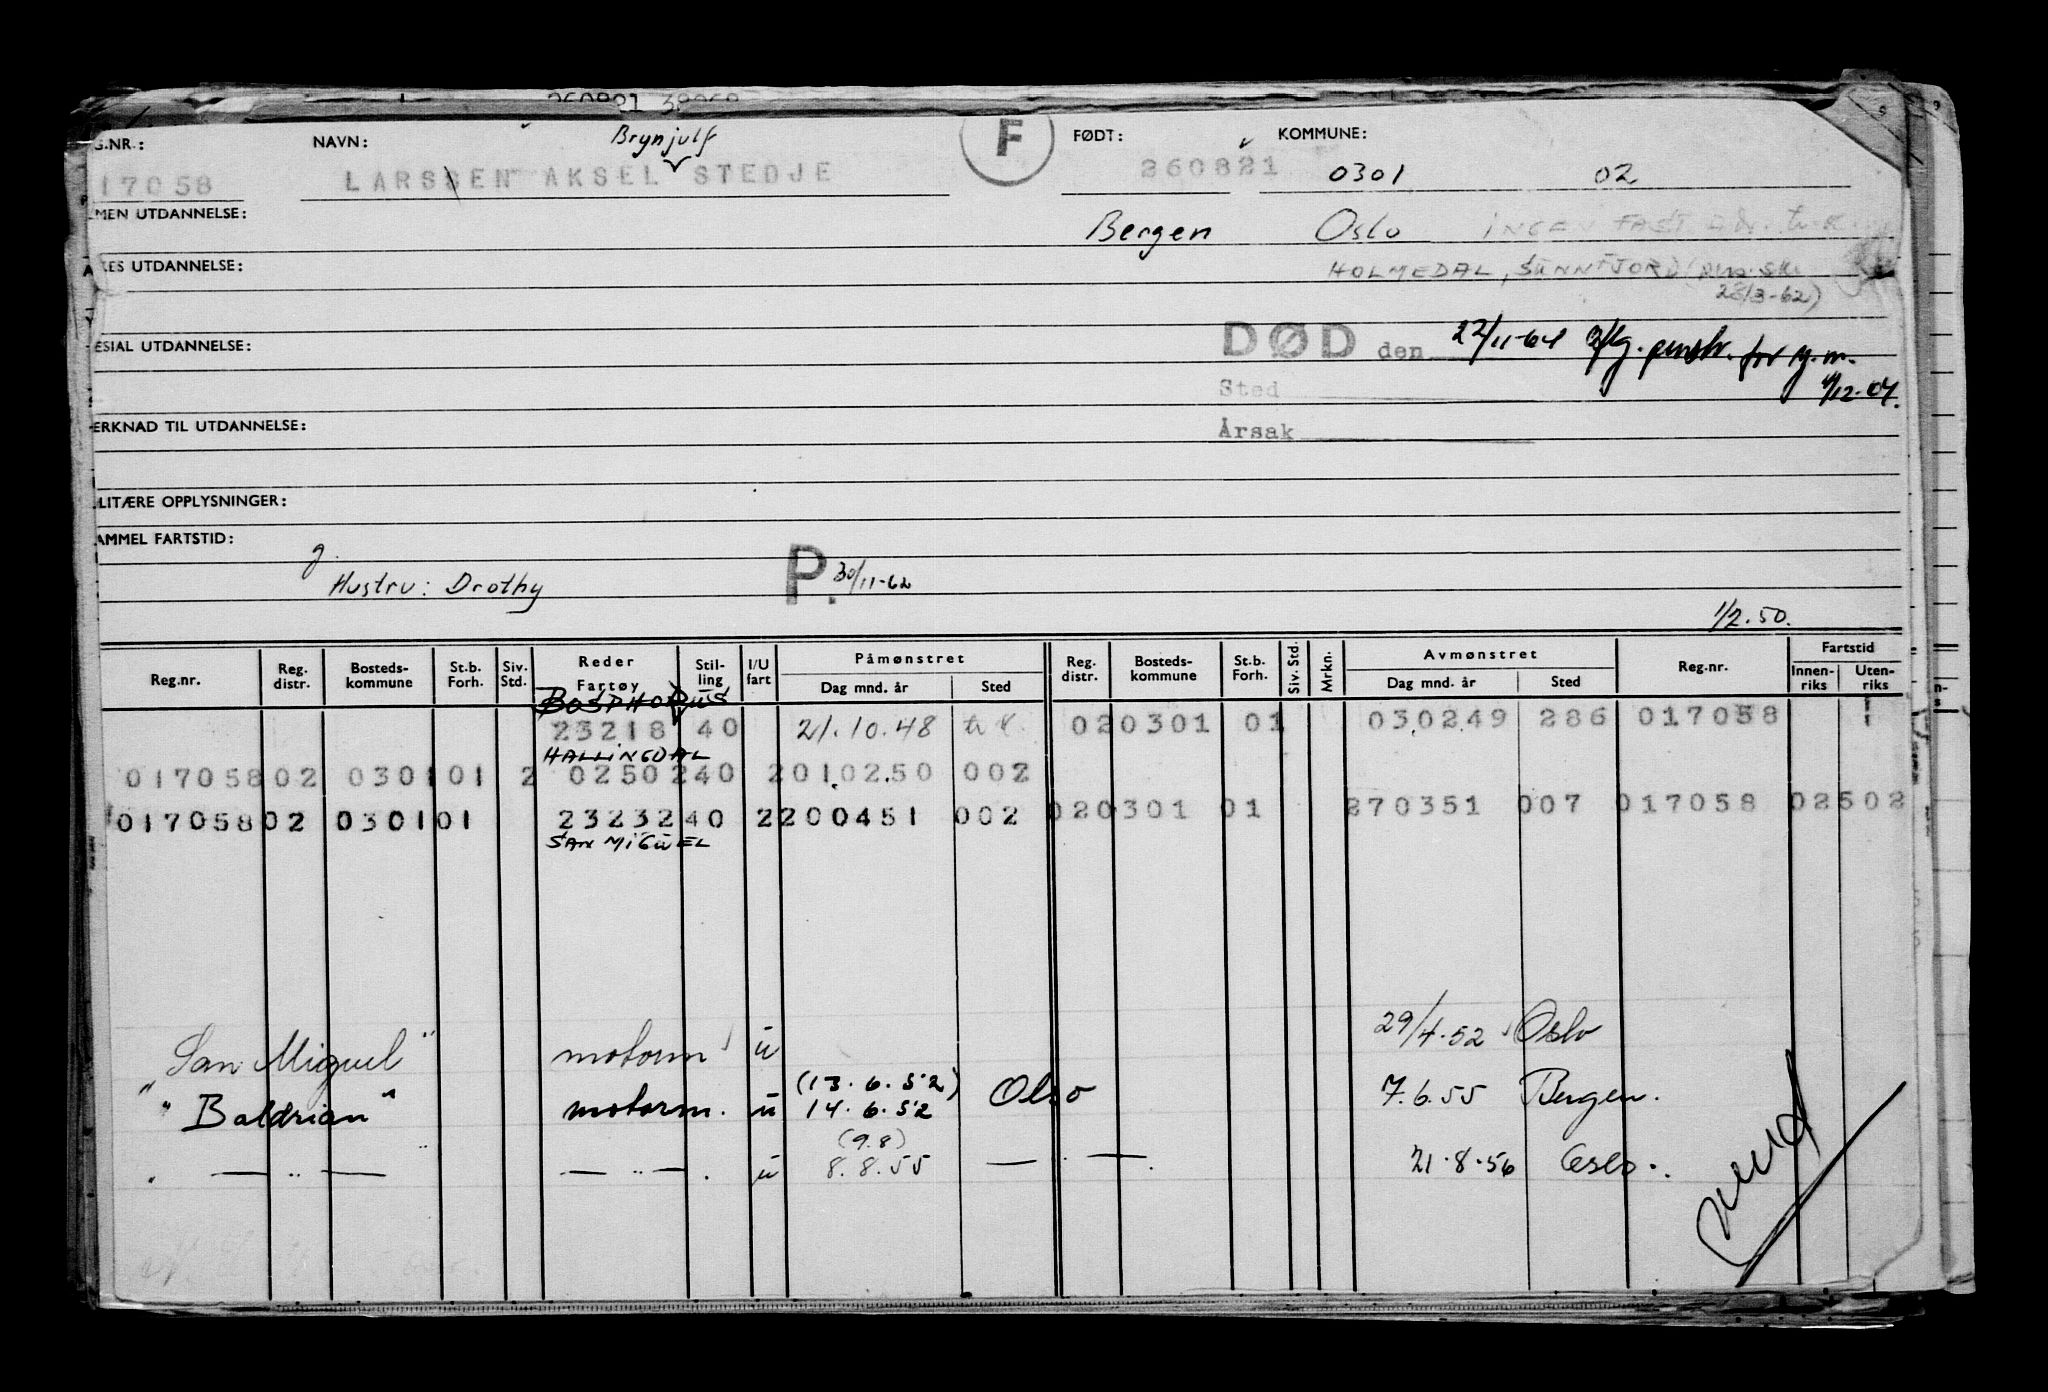 260821 38268
G.NR.: NAVN: Brynjulf F FØDT: KOMMUNE:
17058 LARSSEN AKSEL STEDJE 260821 0301 02
MEN UTDANNELSE: Bergen Oslo INGEN FAST
ES UTDANNELSE: HOLMEDAL, SUNNFJORD
28/3-62)
ESIAL UTDANNELSE: DØD den 22/11-64
Sted 12-64.
ERKNAD TIL UTDANNELSE: Årsak
LITÆRE OPPLYSNINGER:
AMMEL FARTSTID:
g.
Hustru: Drothy P. 30/11-62
1/2.50.
Reg.nr. Reg. distr. Bosteds- kommune St.b. Forh. Siv. Std. Reder Fartøy Stil- ling I/U fart Påmønstret Dag mnd. år Sted Reg. distr. Bosteds- kommune St.b. Forh. Siv. Std. Mrkn. Avmønstret Dag mnd. år Sted Reg.nr. Fartstid Innen- riks Uten- riks
BOSPHORUS
23218 40 21.10.48 020301 01 030249 286 017058 1
HALLINGDAL
017058 02 0301 01 2 02502 40 2 010250 002
020301 01 270351 007 017058 02502
017058 02 0301 01 23232 40 2 200451 002
SAN MIGUEL
"San Miguel" motorm u 29/4.52 Oslo
"Baldrian" motorm. u (13.6.52) 14.6.52 Olso 7.6.55 Bergen.
— " — — " — . u (9.8) 8.8.55 — " — . 21.8.56 Oslo.